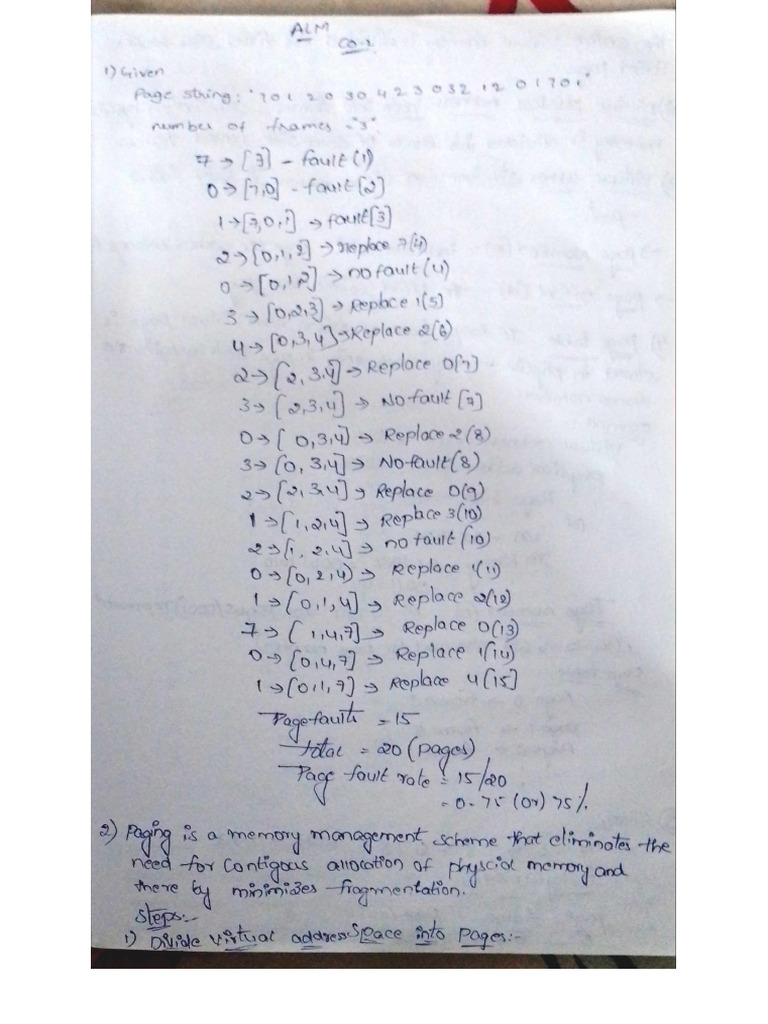 ALM
CO-2
1) Given
Page string: "7 0 1 2 0 3 0 4 2 3 0 3 2 1 2 0 1 7 0 1"
number of frames "3"
7 → [7] - fault (1)
0 → [7,0] - fault [2]
1 → [7,0,1] → fault [3]
2 → [0,1,2] → replace 7(4)
0 → [0,1,2] → no fault (4)
3 → [0,2,3] → Replace 1(5)
4 → [0,3,4] → Replace 2(6)
2 → [2,3,4] → Replace 0(7)
3 → [2,3,4] → No fault [7]
0 → [0,3,4) → Replace 2(8)
3 → [0,3,4] → No fault (8)
2 → [2,3,4] → Replace 0(9)
1 → [1,2,4] → Replace 3(10)
2 → [1,2,4] → no fault (10)
0 → [0,2,4) → Replace 1(11)
1 → [0,1,4] → Replace 2(12)
7 → [1,4,7] → Replace 0(13)
0 → [0,4,7] → Replace 1(14)
1 → [0,1,7] → Replace 4[15]
Page faults = 15
Total = 20 (pages)
Page fault rate = 15/20
= 0.75 (or) 75%
2) Paging is a memory management scheme that eliminates the
need for contigous allocation of physcial memory and
there by minimizes fragmentation.
Steps:-
1) Divide virtual address space into pages:-